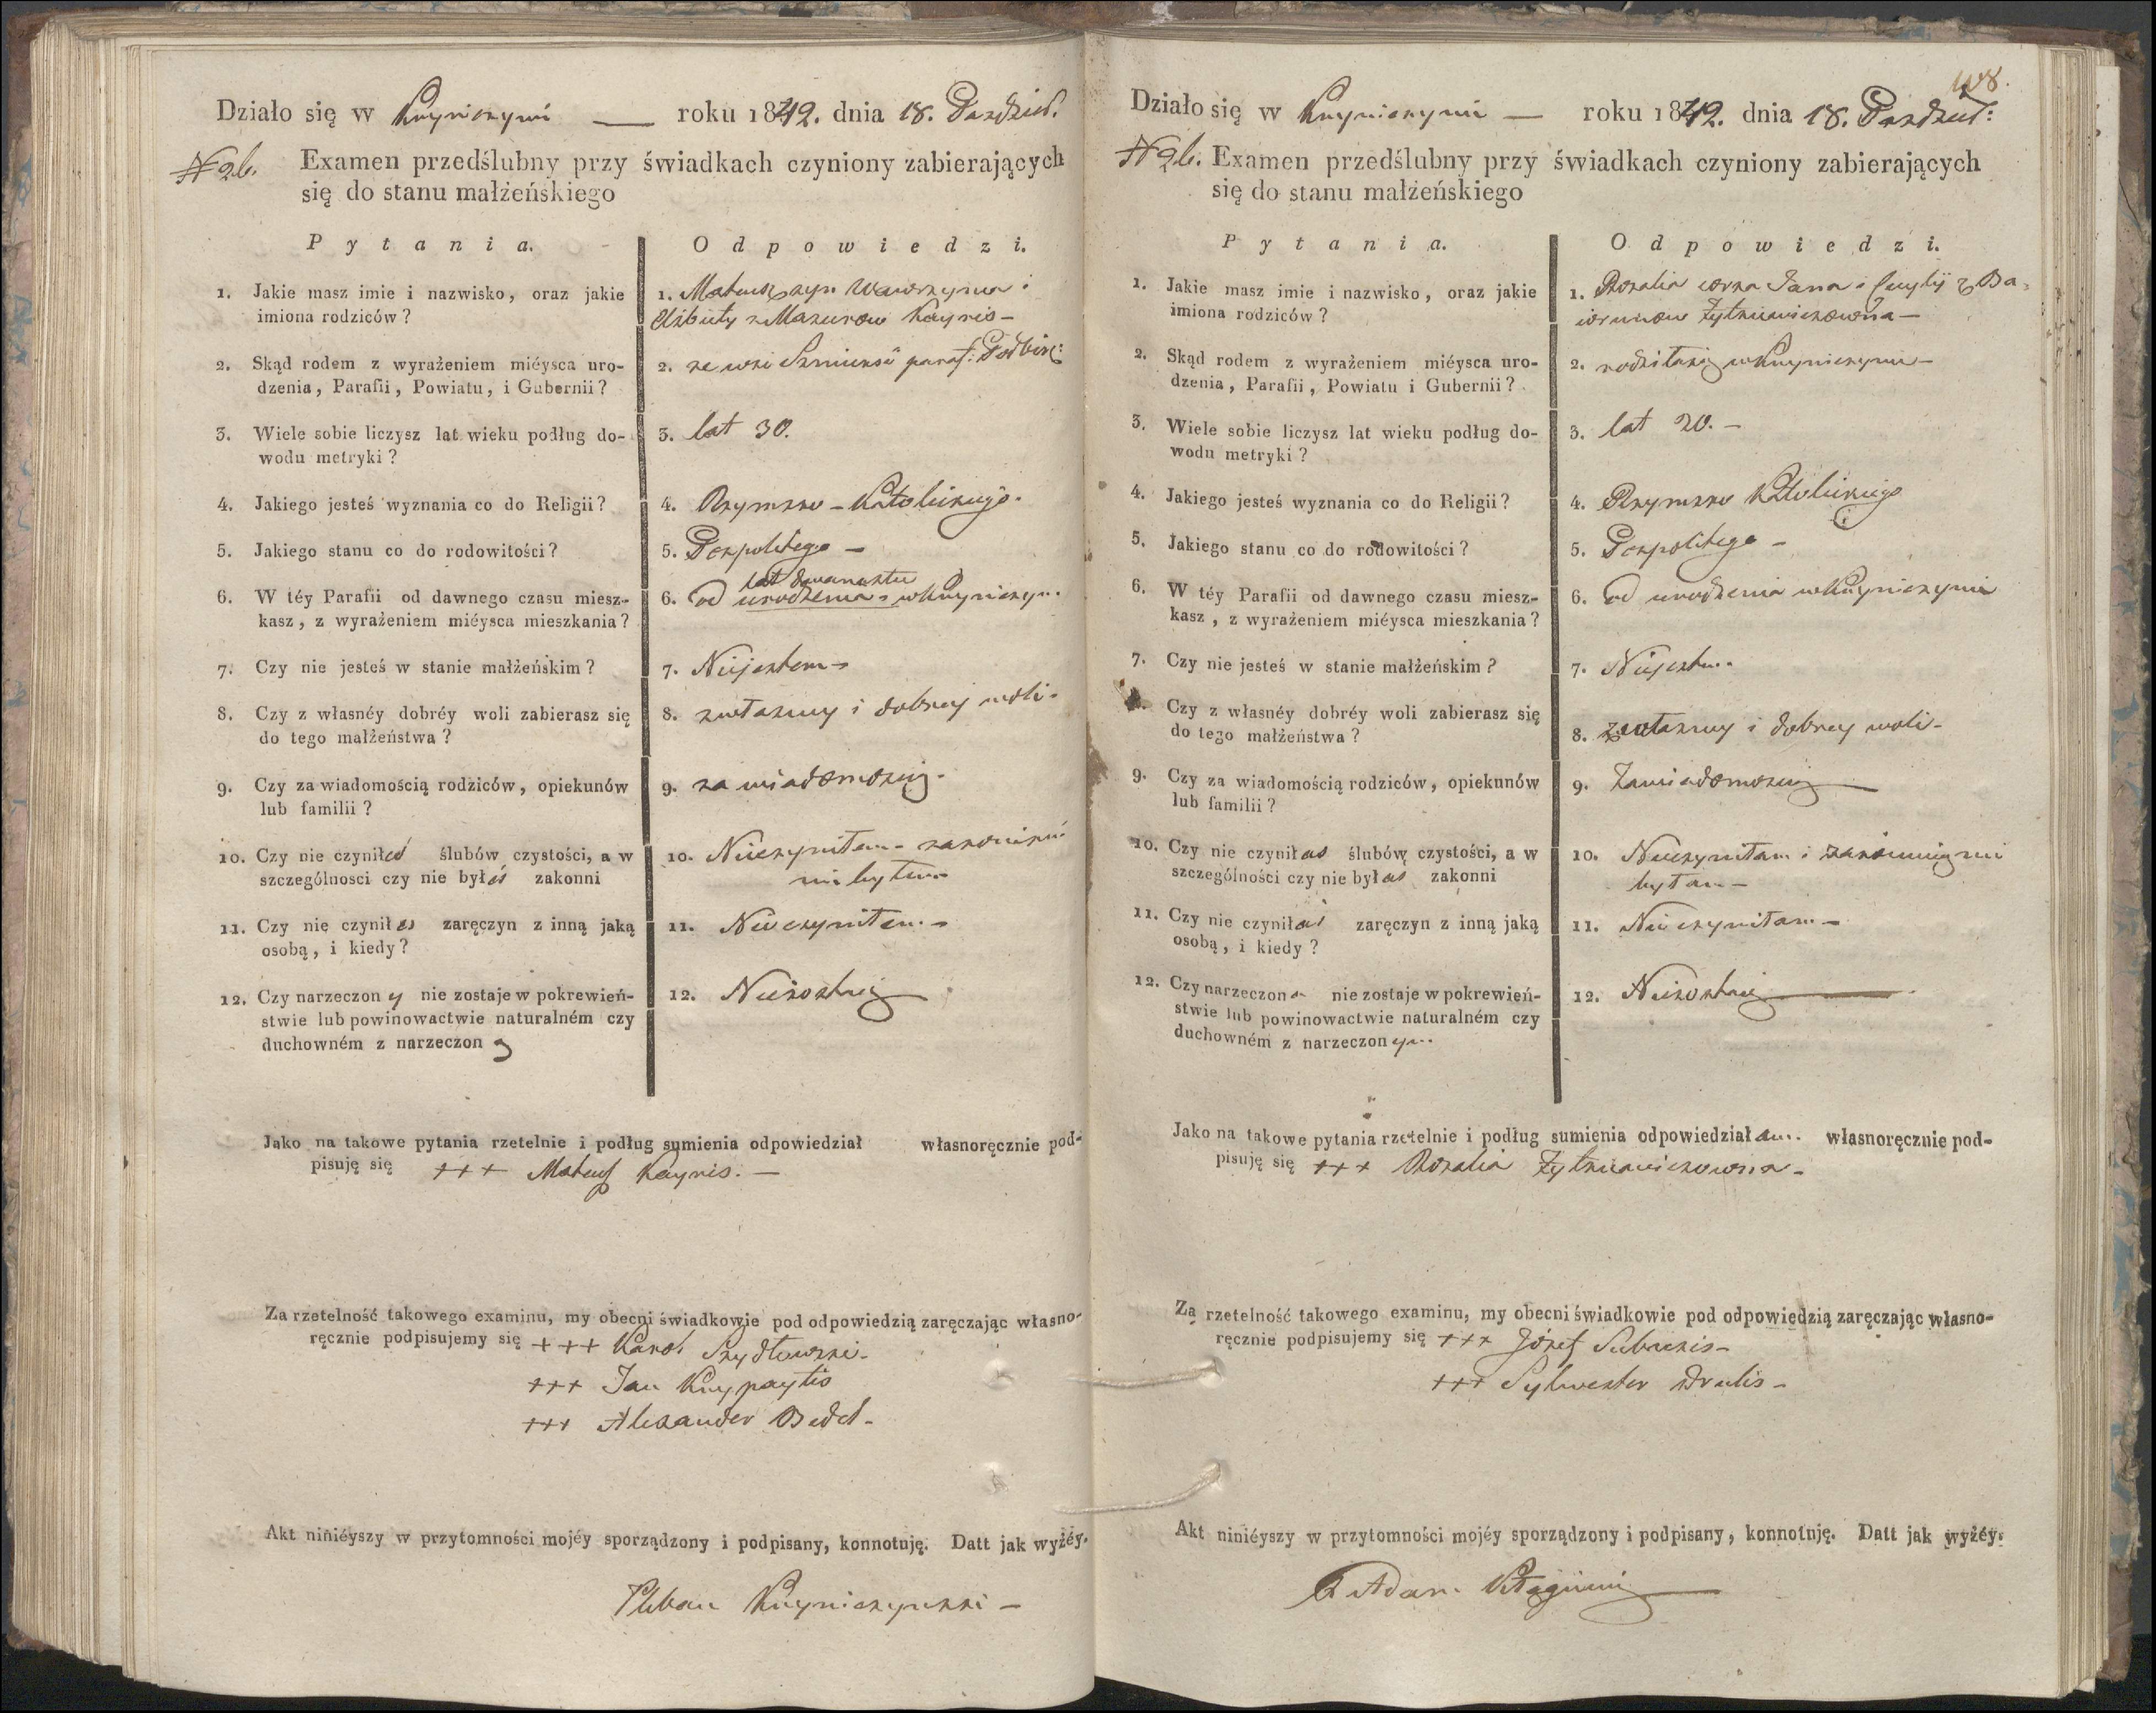 Działo się w Knyniczyni — roku 1842. dnia 18. Pazdzier.
N 26. Examen przedślubny przy świadkach czyniony zabierających
się do stanu małżeńskiego
Pytania.
Odpowiedzi.
1. Jakie masz imie i nazwisko, oraz jakie
imiona rodziców?
1. Mateusz syn Wawrzyńca i
Elżbiety z Mazurow Kaynis —
2. Skąd rodem z wyrażeniem miéysca uro-
dzenia, Parafii, Powiatu, i Gubernii?
2. ze wsi paraf:
3. Wiele sobie liczysz lat wieku podług do-
wodu metryki?
3. lat 30.
4. Jakiego jesteś wyznania co do Religii?
4. Rzymsko - Katolickiego.
5. Jakiego stanu co do rodowitości?
5. Pospolitego —
6. W téy Parafii od dawnego czasu miesz-
kasz, z wyrażeniem miéysca mieszkania?
lat dwanastu
6. od urodzenia
7. Czy nie jesteś w stanie małżeńskim?
7. Niejestem -
8. Czy z własnéy dobréy woli zabierasz się
do tego małżeństwa?
8. zwłasney i dobrey woli -
9. Czy za wiadomością rodziców, opiekunów
lub familii?
9. za wiadomością -
10. Czy nie czyniłeś ślubów czystości, a w
szczególnosci czy nie byłeś zakonni
10. Nieczyniłem - zakonnikiem
nie byłem
11. Czy nie czyniłeś zaręczyn z inną jaką
osobą, i kiedy?
11. Nieczyniłem -
12. Czy narzeczony nie zostaje w pokrewień-
stwie lub powinowactwie naturalném czy
duchowném z narzeczoną
12. Niezostaię
Jako na takowe pytania rzetelnie i podług sumienia odpowiedział własnoręcznie pod-
pisuję się +++ Mateusz Kaynis. —
Za rzetelność takowego examinu, my obecni świadkowie pod odpowiedzią zaręczając własno-
ręcznie podpisujemy się +++ Karol Szydłowski -
+++ Jan
+++ Alexander
Akt niniéyszy w przytomności mojéy sporządzony i podpisany, konnotuję. Datt jak wyżéy.
Pleban
Działo się w Knyniczyni — roku 1842. dnia 18. Pazdzier:
N 26. Examen przedślubny przy świadkach czyniony zabierających
się do stanu małżeńskiego
Pytania.
Odpowiedzi.
1. Jakie masz imie i nazwisko, oraz jakie
imiona rodziców?
1. Rozalia corka Jana i Cecylij z
2. Skąd rodem z wyrażeniem miéysca uro-
dzenia, Parafii, Powiatu i Gubernii?
2. rodziłasię
3. Wiele sobie liczysz lat wieku podług do-
wodu metryki?
3. lat 20. -
4. Jakiego jesteś wyznania co do Religii?
4. Rzymsko Katolickiego
5. Jakiego stanu co do rodowitości?
5. Pospolitego -
6. W téy Parafii od dawnego czasu miesz-
kasz, z wyrażeniem miéysca mieszkania?
6. od urodzenia
7. Czy nie jesteś w stanie małżeńskim?
7. Niejestem
8. Czy z własnéy dobréy woli zabierasz się
do tego małżeństwa?
8. zwłasney i dobrey woli -
9. Czy za wiadomością rodziców, opiekunów
lub familii?
9. Zawiadomością —
10. Czy nie czyniłaś ślubów czystości, a w
szczególności czy nie byłaś zakonni
10. Nieczyniłam i zakonnicą nie
byłam -
11. Czy nie czyniłaś zaręczyn z inną jaką
osobą, i kiedy?
11. Nieczyniłam -
12. Czy narzeczona nie zostaje w pokrewień-
stwie lub powinowactwie naturalném czy
duchowném z narzeczonym
12. Niezostaię —
Jako na takowe pytania rzetelnie i podług sumienia odpowiedziałam własnoręcznie pod-
pisuję się +++ Rozalia
Za rzetelność takowego examinu, my obecni świadkowie pod odpowiedzią zaręczając własno-
ręcznie podpisujemy się +++ Józef
+++ Sylwester
Akt niniéyszy w przytomności mojéy sporządzony i podpisany, konnotuję. Datt jak wyżéy.
X Adam